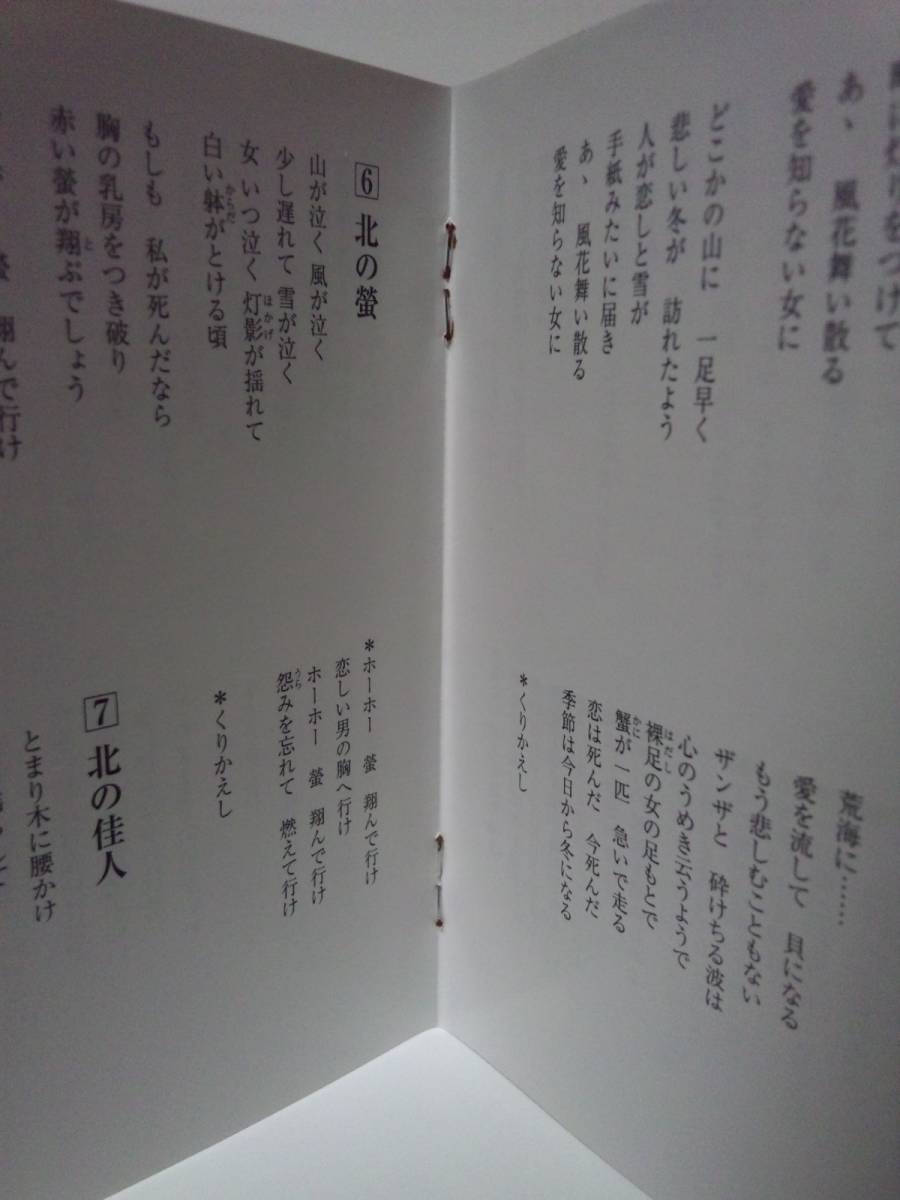 に灯りをつけて
あゝ 風花舞い散る
愛を知らない女に
どこかの山に 一足早く
悲しい冬が 訪れたよう
人が恋しと雪が
手紙みたいに届き
あゝ 風花舞い散る
愛を知らない女に
荒海に……
愛を流して 貝になる
もう悲しむこともない
ザンザと 砕けちる波は
心のうめき云うようで
裸足の女の足もとで
はだし
蟹が一匹 急いで走る
かに
恋は死んだ 今死んだ
季節は今日から冬になる
*くりかえし
6 北の螢
山が泣く 風が泣く
少し遅れて 雪が泣く
女 いつ泣く 灯影が揺れて
ほかげ
白い躰がとける頃
からだ
もしも 私が死んだなら
胸の乳房をつき破り
赤い螢が翔ぶでしょう
と
螢 翔んで行け
*ホーホー 螢 翔んで行け
恋しい男の胸へ行け
ホーホー 螢 翔んで行け
怨みを忘れて 燃えて行け
うら
*くりかえし
7 北の佳人
とまり木に腰かけ